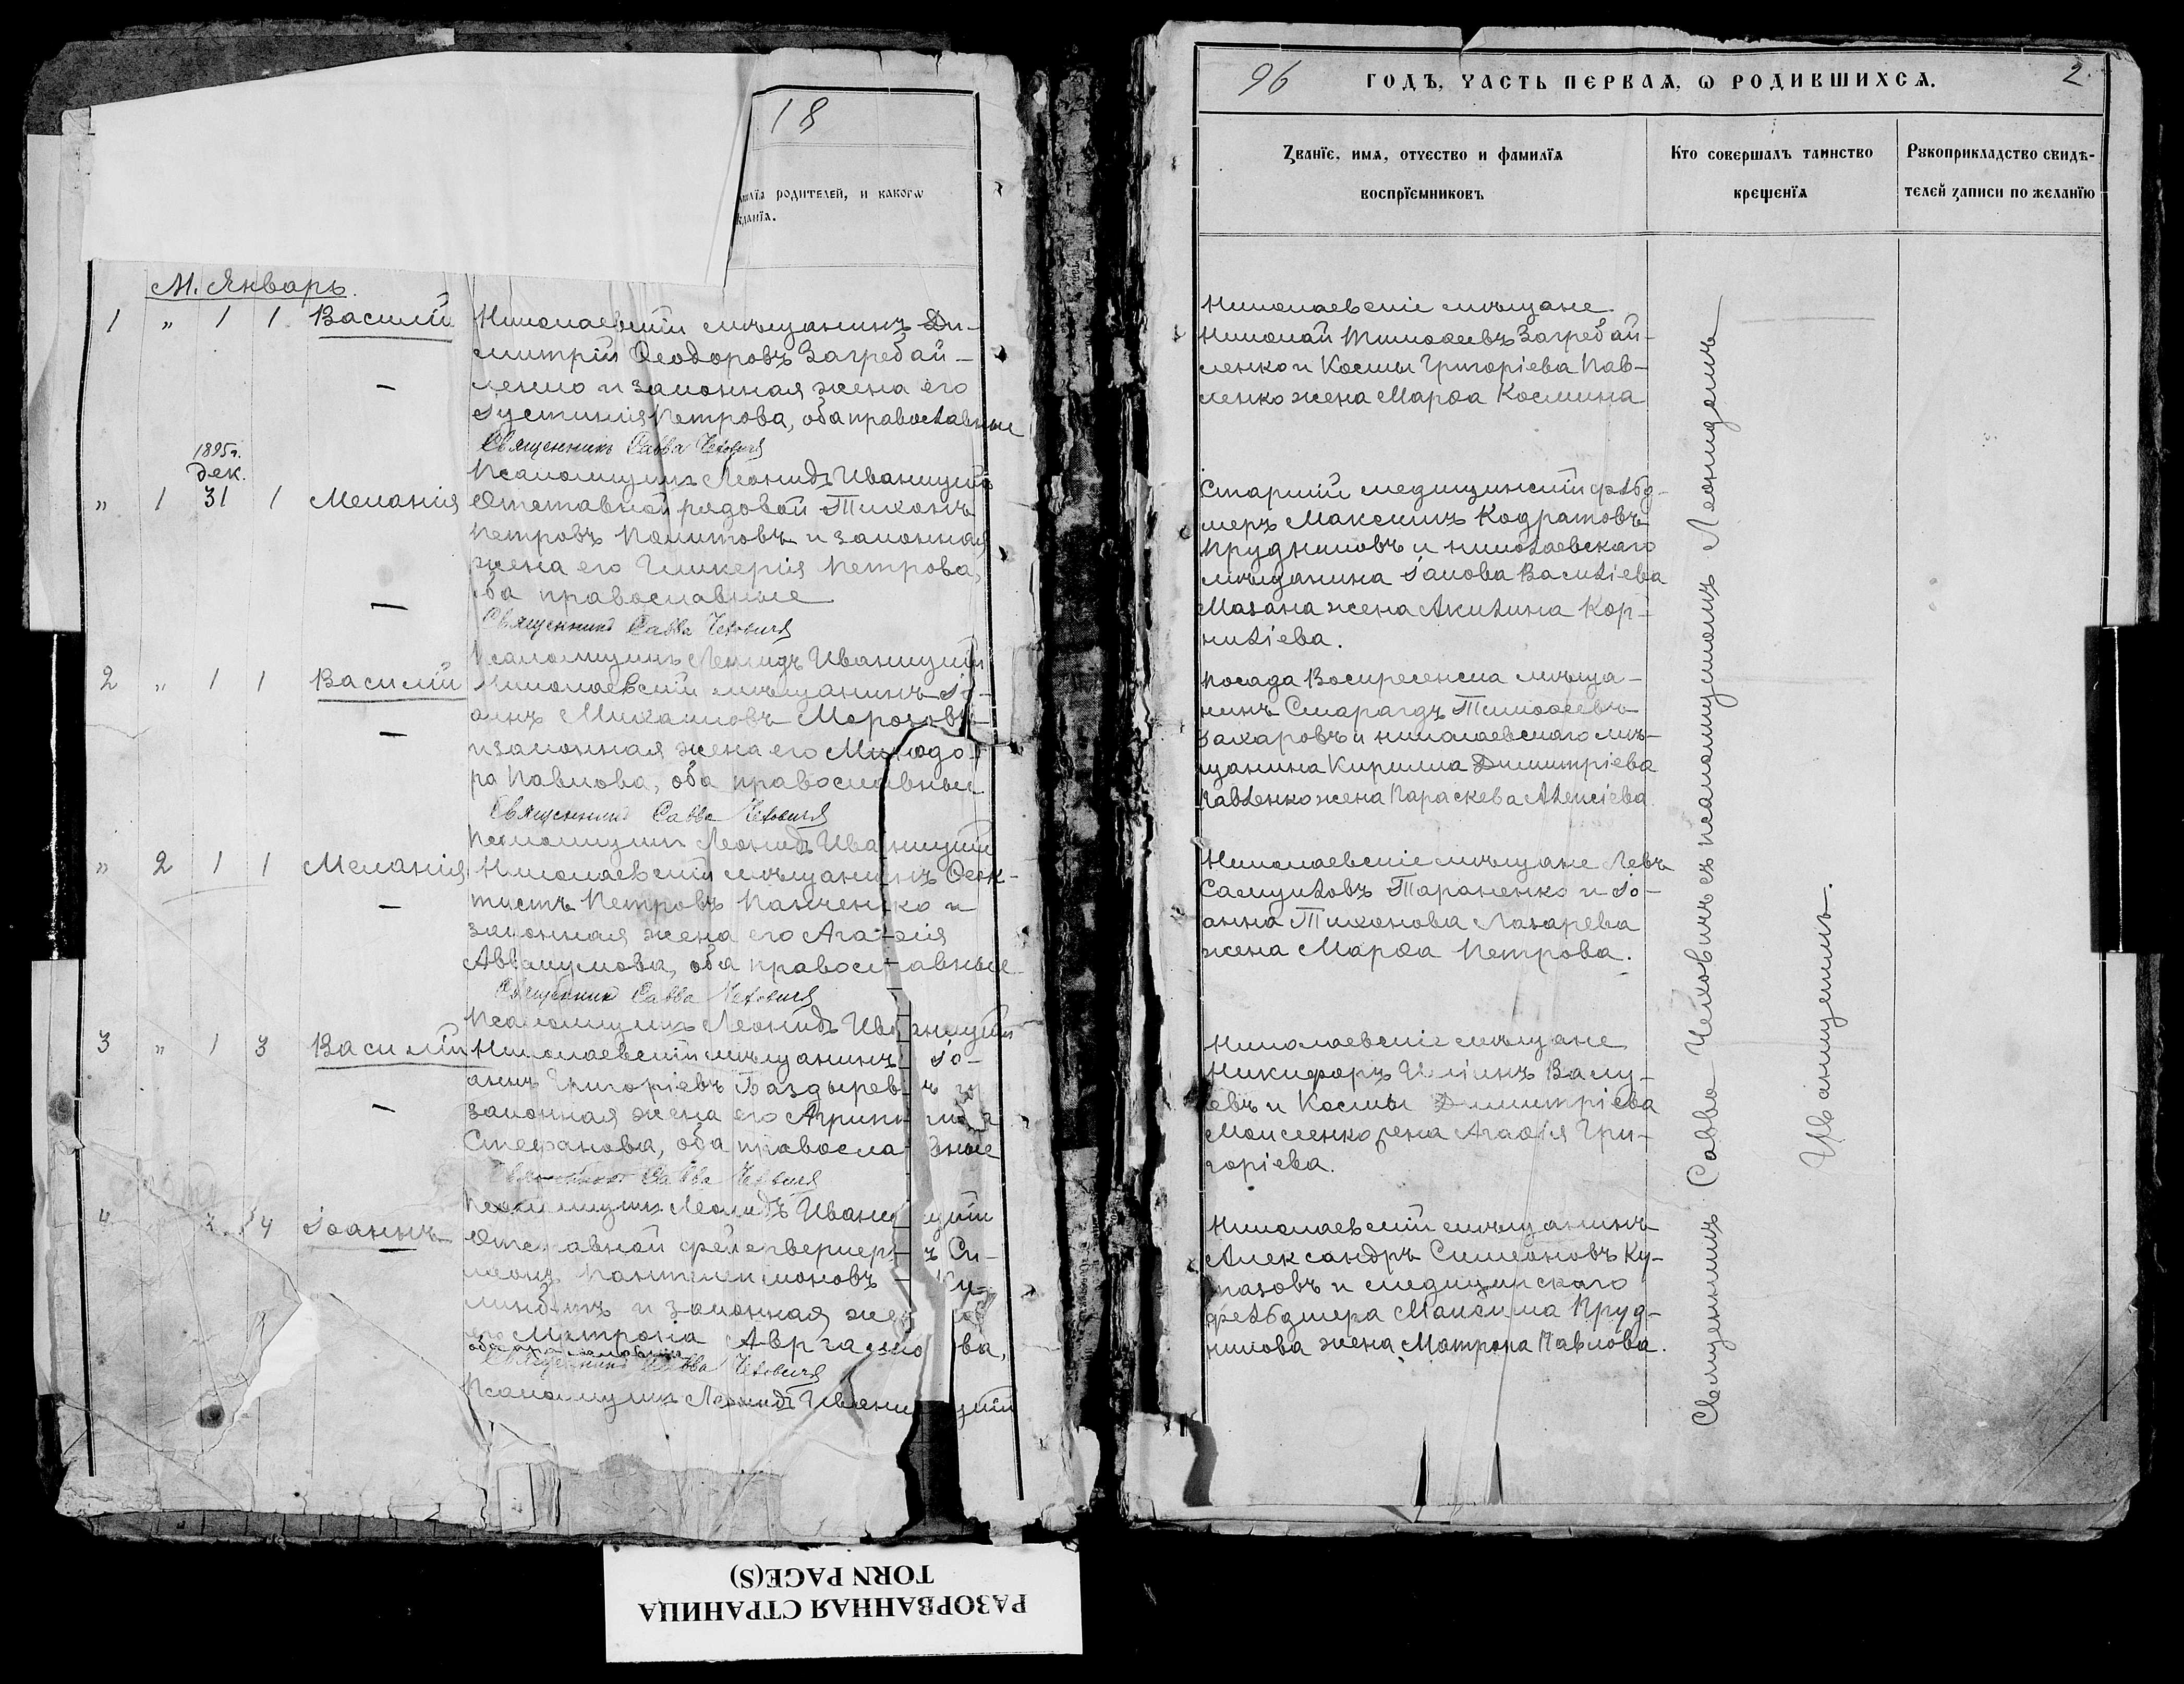 18
родителей, и какогѡ
М. Январь.
1 " 1 1 Василій Николаевскій мѣщанинъ Ди-
митрій Ѳеодоровъ Загребай-
ленко и законная жена его
Іустинія Петрова, оба православные
Священникъ Савва Чеховичъ
Псаломщикъ Леонидъ Иваницкій
1895 г.
дек.
" 1 31 1 Меланія Отставной рядовой Тихонъ
Петровъ и законная
жена его Гликерія Петрова,
оба православные
Священникъ Савва Чеховичъ
Псаломщикъ Леонидъ Иваницкій
2 " 1 1 Василій Николаевскій мѣщанинъ Іо-
аннъ Михаиловъ Морозовъ
и законная жена его Миродо-
ра Павлова, оба православные
Священникъ Савва Чеховичъ
Псаломщикъ Леонидъ Иваницкій
" 2 1 1 Меланія Николаевскій мѣщанинъ Ѳеок-
тистъ Петровъ Панченко и
законная жена его Агаѳія
Аввакумова, оба православные
Священникъ Савва Чеховичъ
Псаломщикъ Леонидъ Иваницкій
3 " 1 3 Василій Николаевскій мѣщанинъ Іо-
аннъ Григоріевъ Баздыревъ и
законная жена его Агриппина
Стефанова, оба православные
Священникъ Савва Чеховичъ
Псаломщикъ Леонидъ Иваницкій
4 4 Іоаннъ Отставной фейерверкеръ Си-
меонъ Пантелеимоновъ
и законная жена
его Матрона ва,
оба православные
Священникъ Савва Чеховичъ
Псаломщикъ Леонидъ Иваницкій
96 ГОДЪ, ЧАСТЬ ПЕРВАѦ, Ѡ РОДИВШИХСѦ. 2
Званїе, имѧ, отчество и фамилїѧ
воспрїемниковъ
Кто совершалъ таинство
крещенїѧ
Рꙋкоприкладство свидѣ-
телей записи по желанїю
Николаевскіе мѣщане
Николай Тимоѳеевъ Загребай-
ленко и Космы Григоріева Пав-
ленко жена Марѳа Космина
Старшій медицинскій фельд-
шеръ Максимъ Кодратовъ
Прудниковъ и николаевскаго
мѣщанина Іакова Василіева
Мазана жена Акилина Кор-
ниліева.
Посада Воскресенска мѣща-
нинъ Смарагдъ Тимоѳеевъ
Захаровъ и николаевскаго мѣ-
щанина Кирилла Димитріева
Павленко жена Параскева Алексіева.
Николаевскіе мѣщане Левъ
Самуиловъ Тараненко и Іо-
анна Тихонова Лазарева
жена Марѳа Петрова.
Николаевскіе мѣщане
Никифоръ Иліинъ Валу-
евъ и Космы Димитріева
Моисеенко жена Агаѳія Гри-
горіева.
Николаевскій мѣщанинъ
Александръ Симеоновъ Ку-
пазовъ и медицинскаго
фельдшера Максима Пруд-
никова жена Матрона Павлова.
Священникъ Савва Чеховичъ съ псаломщикомъ Леонидомъ
Иваницкимъ.
РАЗОРВАННАЯ СТРАНИЦА
TORN PAGE(S)